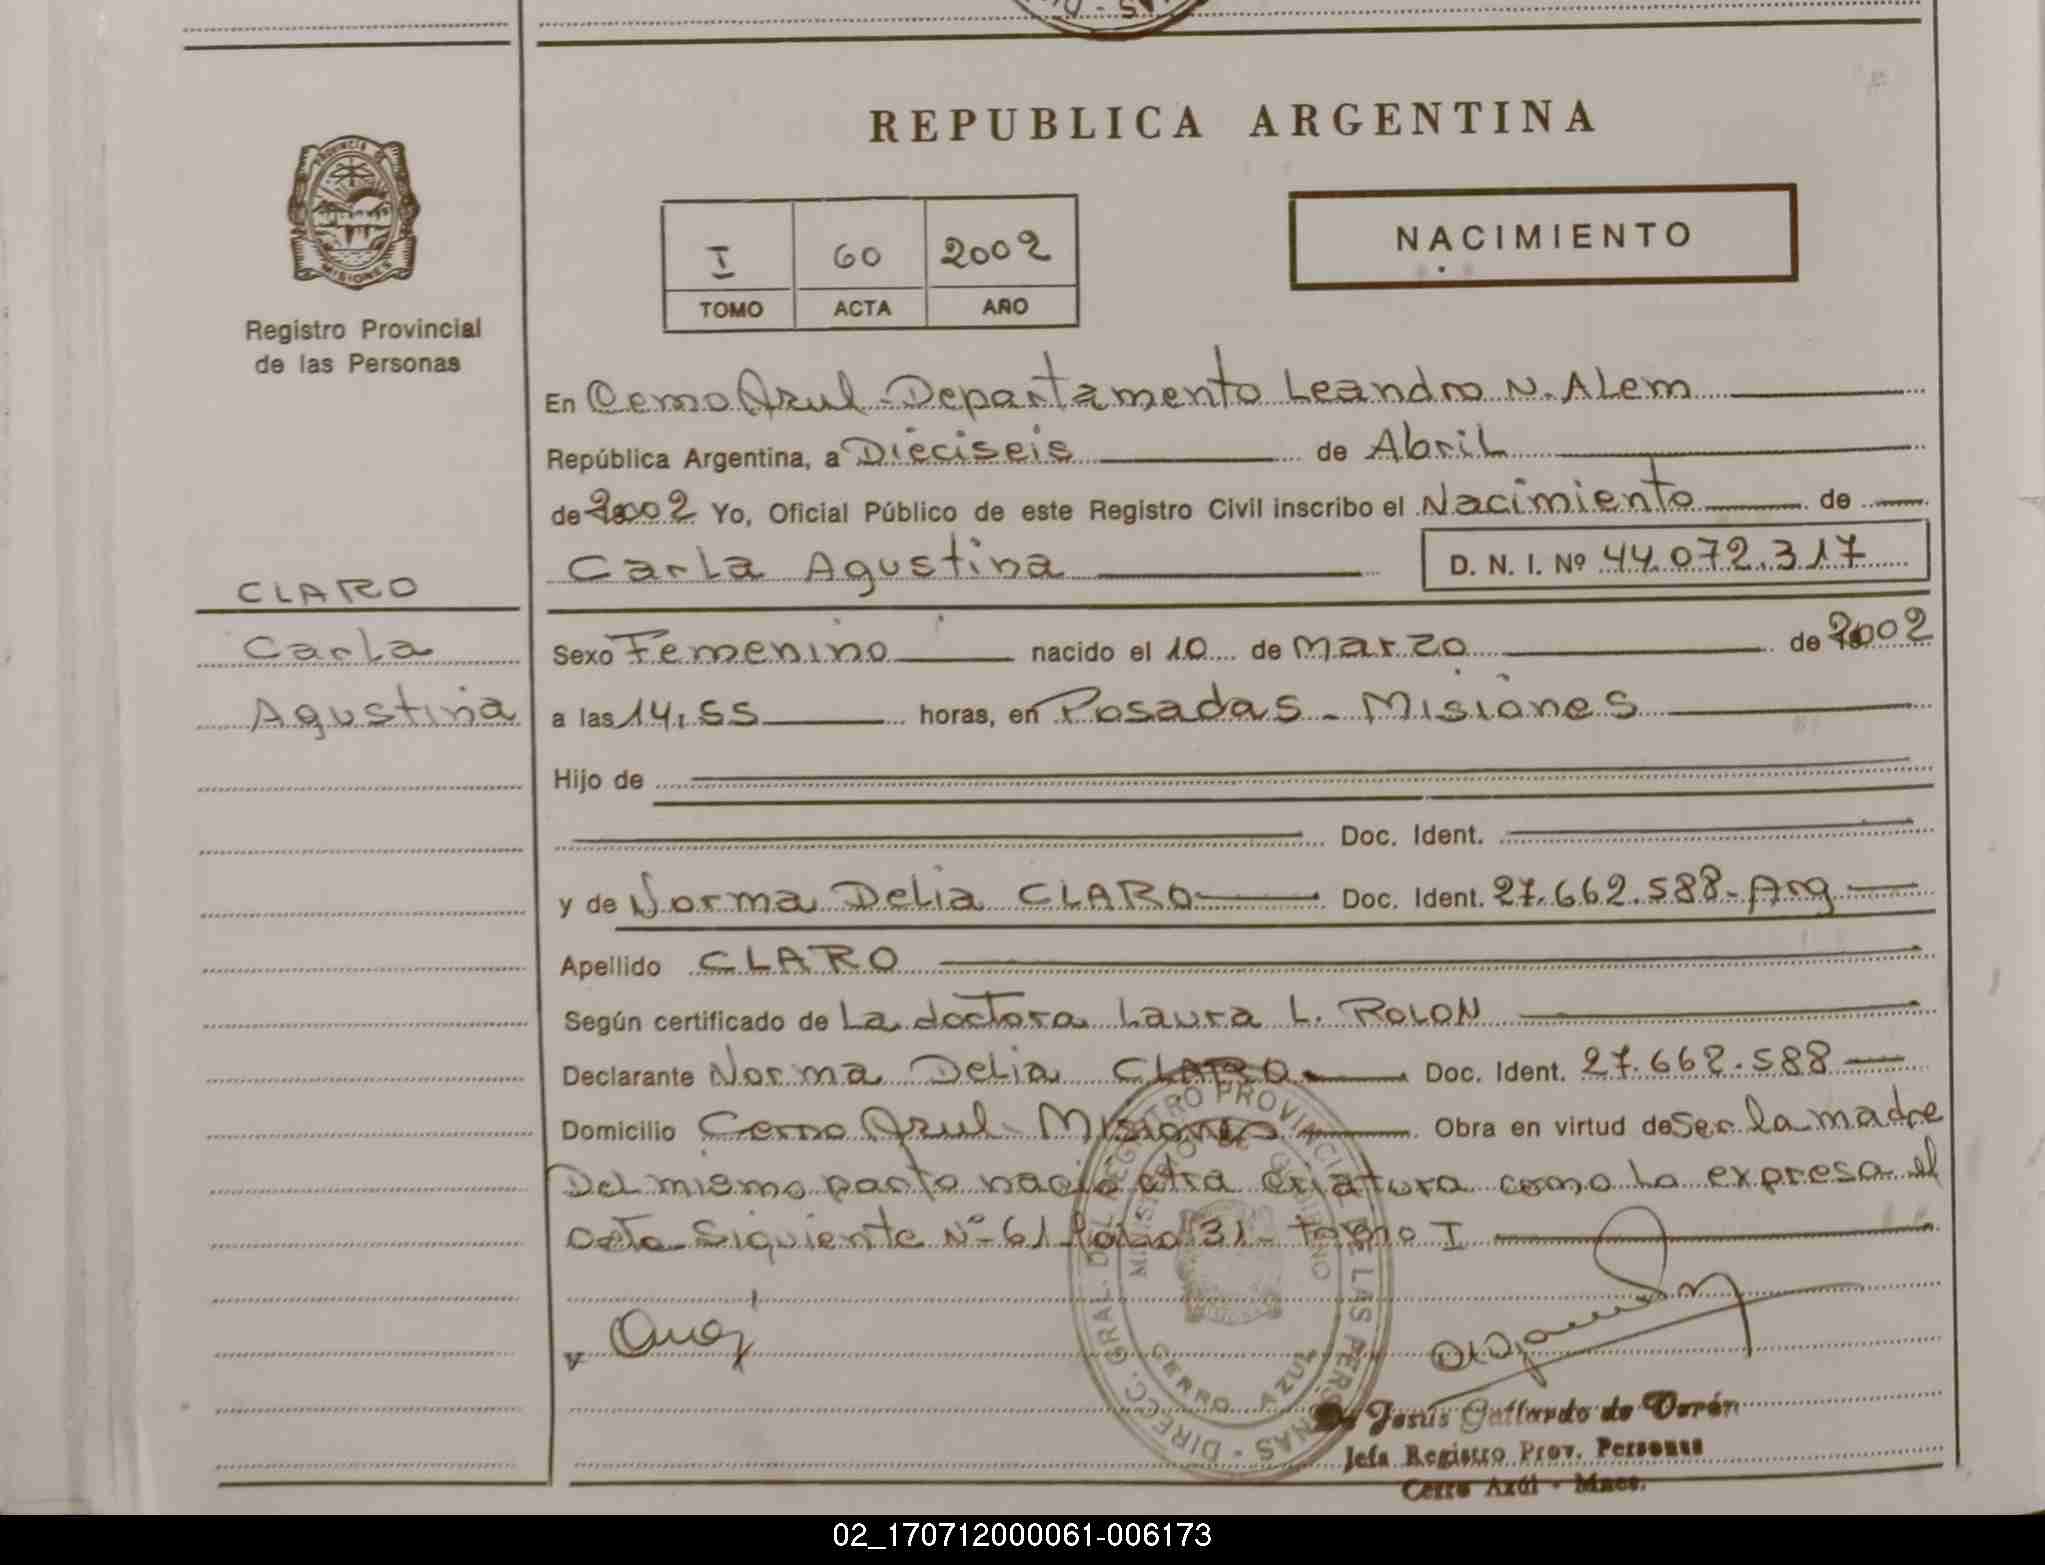 REPUBLICA ARGENTINA
PROVINCIA DE
MISIONES
Registro Provincial
de las Personas
I 60 2002
TOMO ACTA AÑO
NACIMIENTO
En Cerro Azul - Departamento Leandro N. Alem
República Argentina, a Dieciseis de Abril
de 2002 Yo, Oficial Público de este Registro Civil inscribo el Nacimiento de
Carla Agustina D. N. I. Nº 44.072.317
CLARO
Carla
Agustina
Sexo Femenino nacido el 10 de marzo de 2002
a las 14,55 horas, en Posadas - Misiones
Hijo de
Doc. Ident.
y de Norma Delia CLARO Doc. Ident. 27.662.588 - Arg
Apellido CLARO
Según certificado de La doctora Laura L. ROLON
Declarante Norma Delia CLARO Doc. Ident. 27.662.588
Domicilio Cerro Azul - Misiones Obra en virtud de Ser la madre
Del mismo parto nació otra criatura como lo expresa el
acta Siguiente Nº 61 folio 31 - tomo I
DIRECC. GRAL. DEL REGISTRO PROVINCIAL DE LAS PERSONAS
MINISTERIO DE GOBIERNO
CERRO AZUL
Jesús Gallardo de Verón
Jefa Registro Prov. Personas
Cerro Azul - Mnes.
02_170712000061-006173